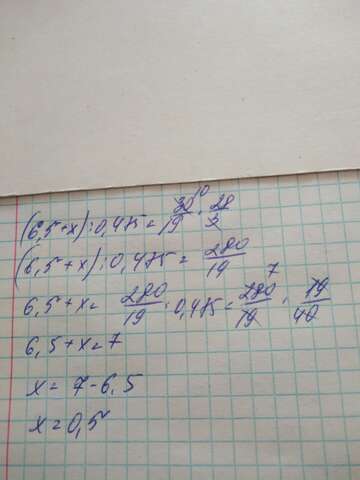 (6,5+x):0,475=30/19 10 · 28/3
(6,5+x):0,475=280/19
6,5+x=280/19·0,475=280/19 7 · 19/40
6,5+x=7
x=7-6,5
x=0,5